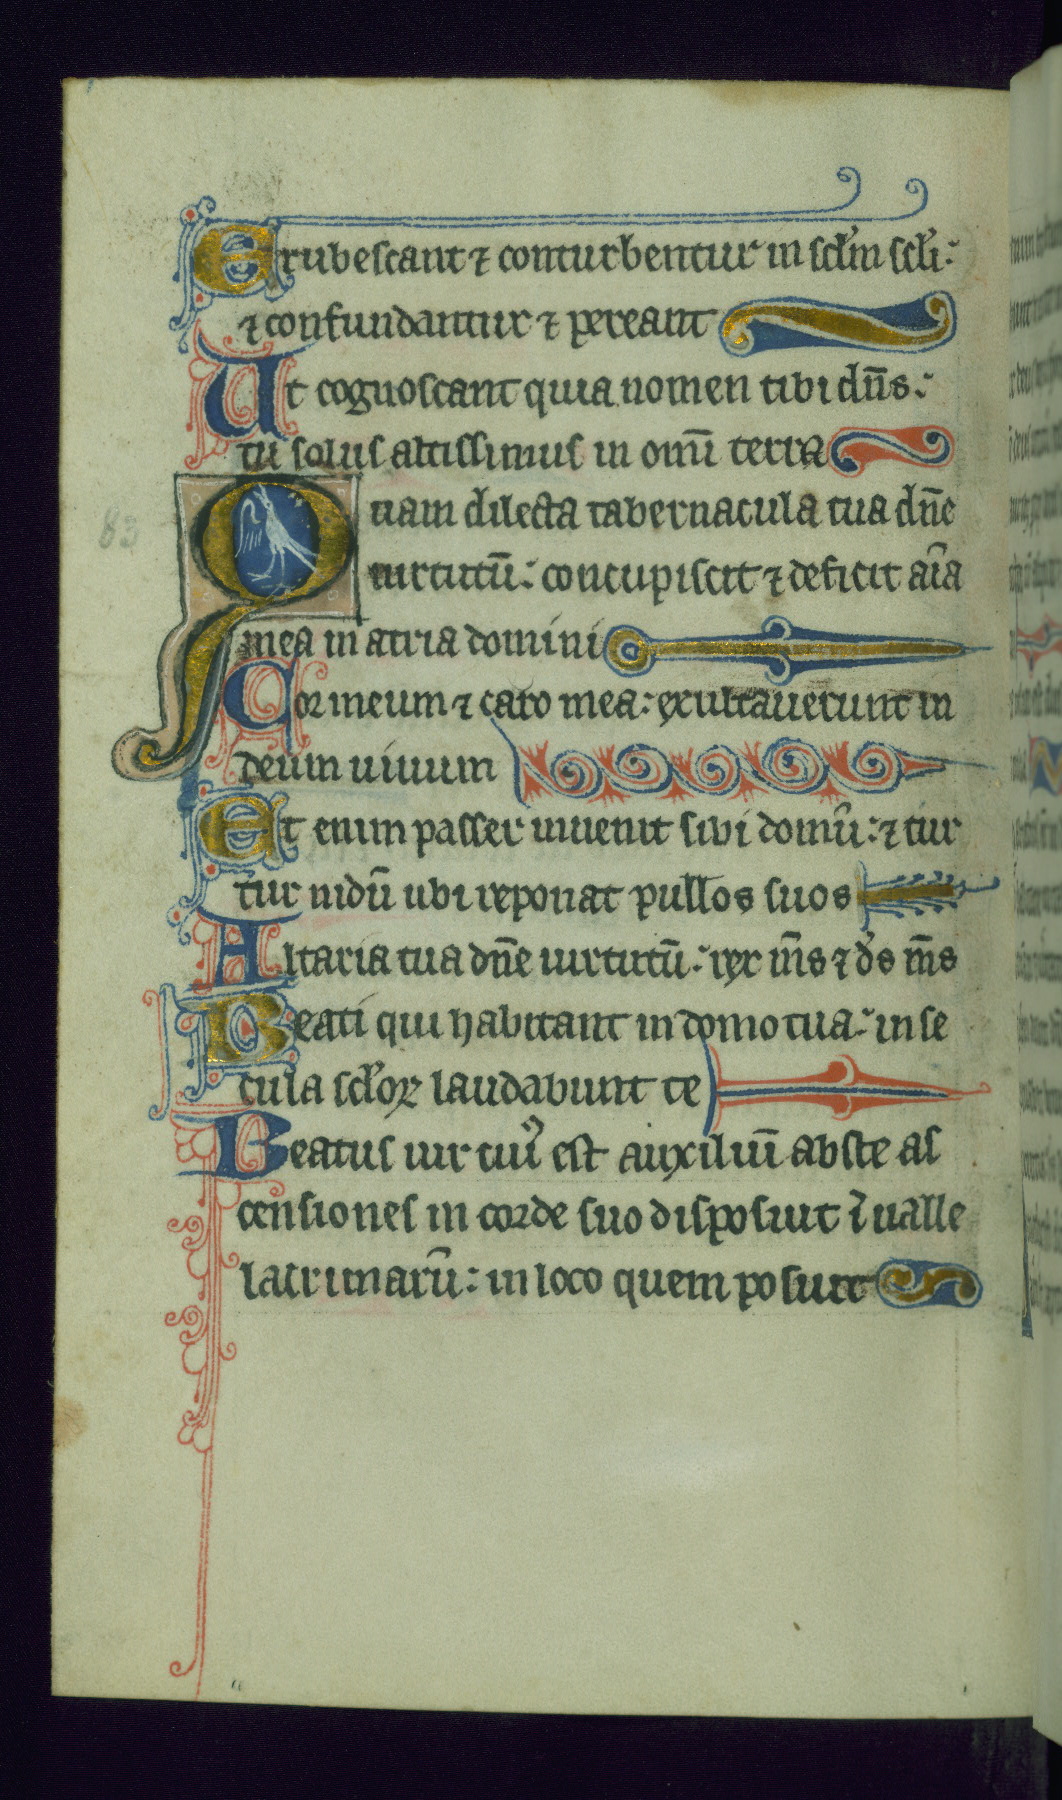 Erubescant ⁊ conturbentur in sclm̄ scli:
⁊ confundantur ⁊ pereant
Ut cognoscant quia nomen tibi dn̄s:
tu solus altissimus in omi̅ terra
83
Quam dilecta tabernacula tua dn̄e
uirtutū: concupiscit ⁊ deficit aīa
mea in atria domini
Cor meum ⁊ caro mea: exultauerunt in
deum uiuum
Et enim passer inuenit sibi domū: ⁊ tur
tur nidū ubi reponat pullos suos
Altaria tua dn̄e uirtutū: rex m̄s ⁊ ds̄ m̄s
Beati qui habitant in domo tua: in se
cula sclo℟ laudabunt te
Beatus uir cui᷒ est auxiliū abs te as
censiones in corde suo disposuit ī ualle
lacrimarū: in loco quem posuit